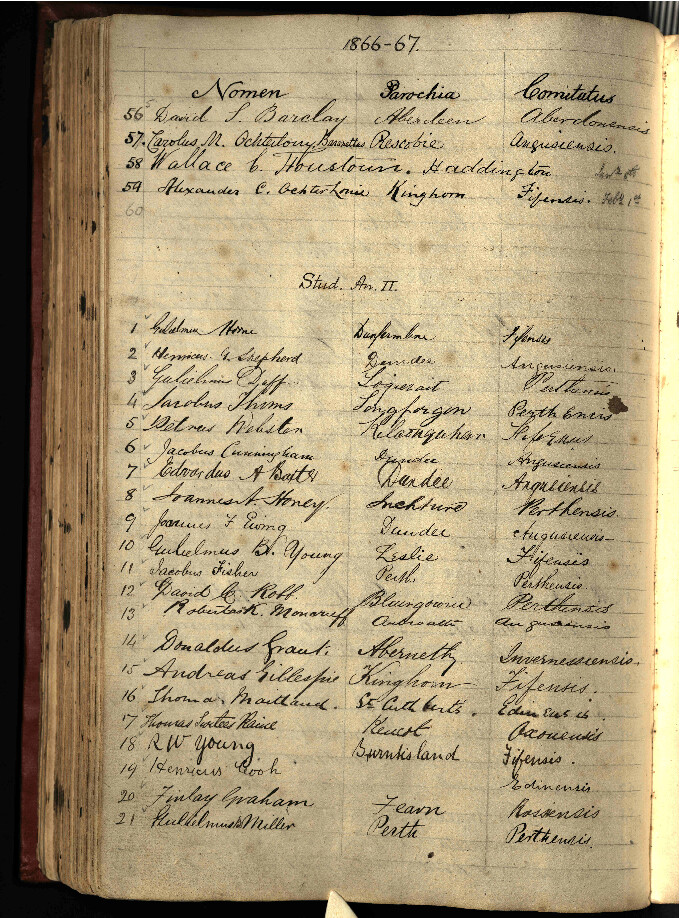 1866-67.
Nomen Parochia Comitatus
56 David S. Barclay Aberdeen Aberdonensis
57. Carolus M. Ochterlony Baronettus Rescobie Angusiensis.
58 Wallace C. Houstoun. Haddington
59 Alexander C. Ochterlonie Kinghorn Fifensis. Feb. 1st
60
Stud. An. II.
1 Gulielmus Horne Dunfermline Fifensis
2 Henricus G. Shepherd Dundee Angusiensis
3 Gulielmus Duff Logierait Perthensis
4 Jacobus Thoms Longforgan Perthensis
5 Petrus Webster Kilconquhar Fifensis
6 Jacobus Cunningham Dundee Angusiensis
7 Edvardus A Baxter Dundee Angusiensis
8 Joannes A. Honey. Inchture Perthensis
9 Joannes F Ewing Dundee Angusiensis
10 Gulielmus B. Young Leslie Fifensis
11 Jacobus Fisher Perth. Perthensis
12 David C. Robb Blairgowrie Perthensis
13 Robertus K. Moncrieff Angusiensis
14 Donaldus Grant. Abernethy Invernessiensis.
15 Andreas Gillespie Kinghorn Fifensis.
16 Thomas Maitland. St Cuthberts. Edinensis
17 Thomas Surtees Raine Oxonensis
18 R W Young Burntisland Fifensis.
19 Henricus Edinensis
20 Finlay Graham Fearn Rossensis
21 Gulielmus Miller Perth Perthensis.